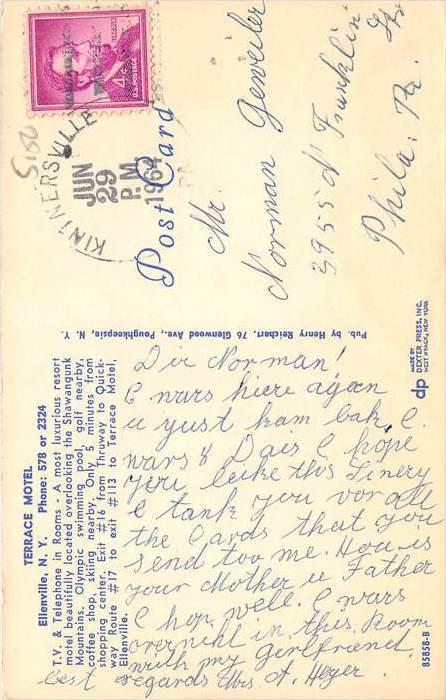 TERRACE MOTEL
Ellenville, N. Y. Phone: 578 or 2324
T.V. & Telephone in Rooms - A most luxurious resort
motel beautifully located overlooking the Shawangunk
Mountains. Olympic swimming pool, golf nearby,
coffee shop, skiing nearby. Only 5 minutes from
shopping center. Exit #16 from Thruway to Quick-
way Route #17 to exit #113 to Terrace Motel,
Ellenville.
Dir Norman!
I wars hiere again
u yust kam bak. I
wars 8 Daes I hope
you leike this Sinery
I tank you vor all
the Cards that you
send too me. Hou is
your Mother u Father
I hop well. I wars
overniht in this Room
with my girlfriend
best regards Mrs A. Heyer
Pub. by Henry Reichert, 76 Glenwood Ave., Poughkeepsie, N. Y.
Post Card
KINTNERSVILLE
PA
JUN
29
P.M
1964
4¢
U.S. POSTAGE
5180
Mr.
Norman Geweiler
3955 N Franklin St
Phila. Pa.
MADE BY
dp DEXTER PRESS, INC.
WEST NYACK, NEW YORK
85858-B